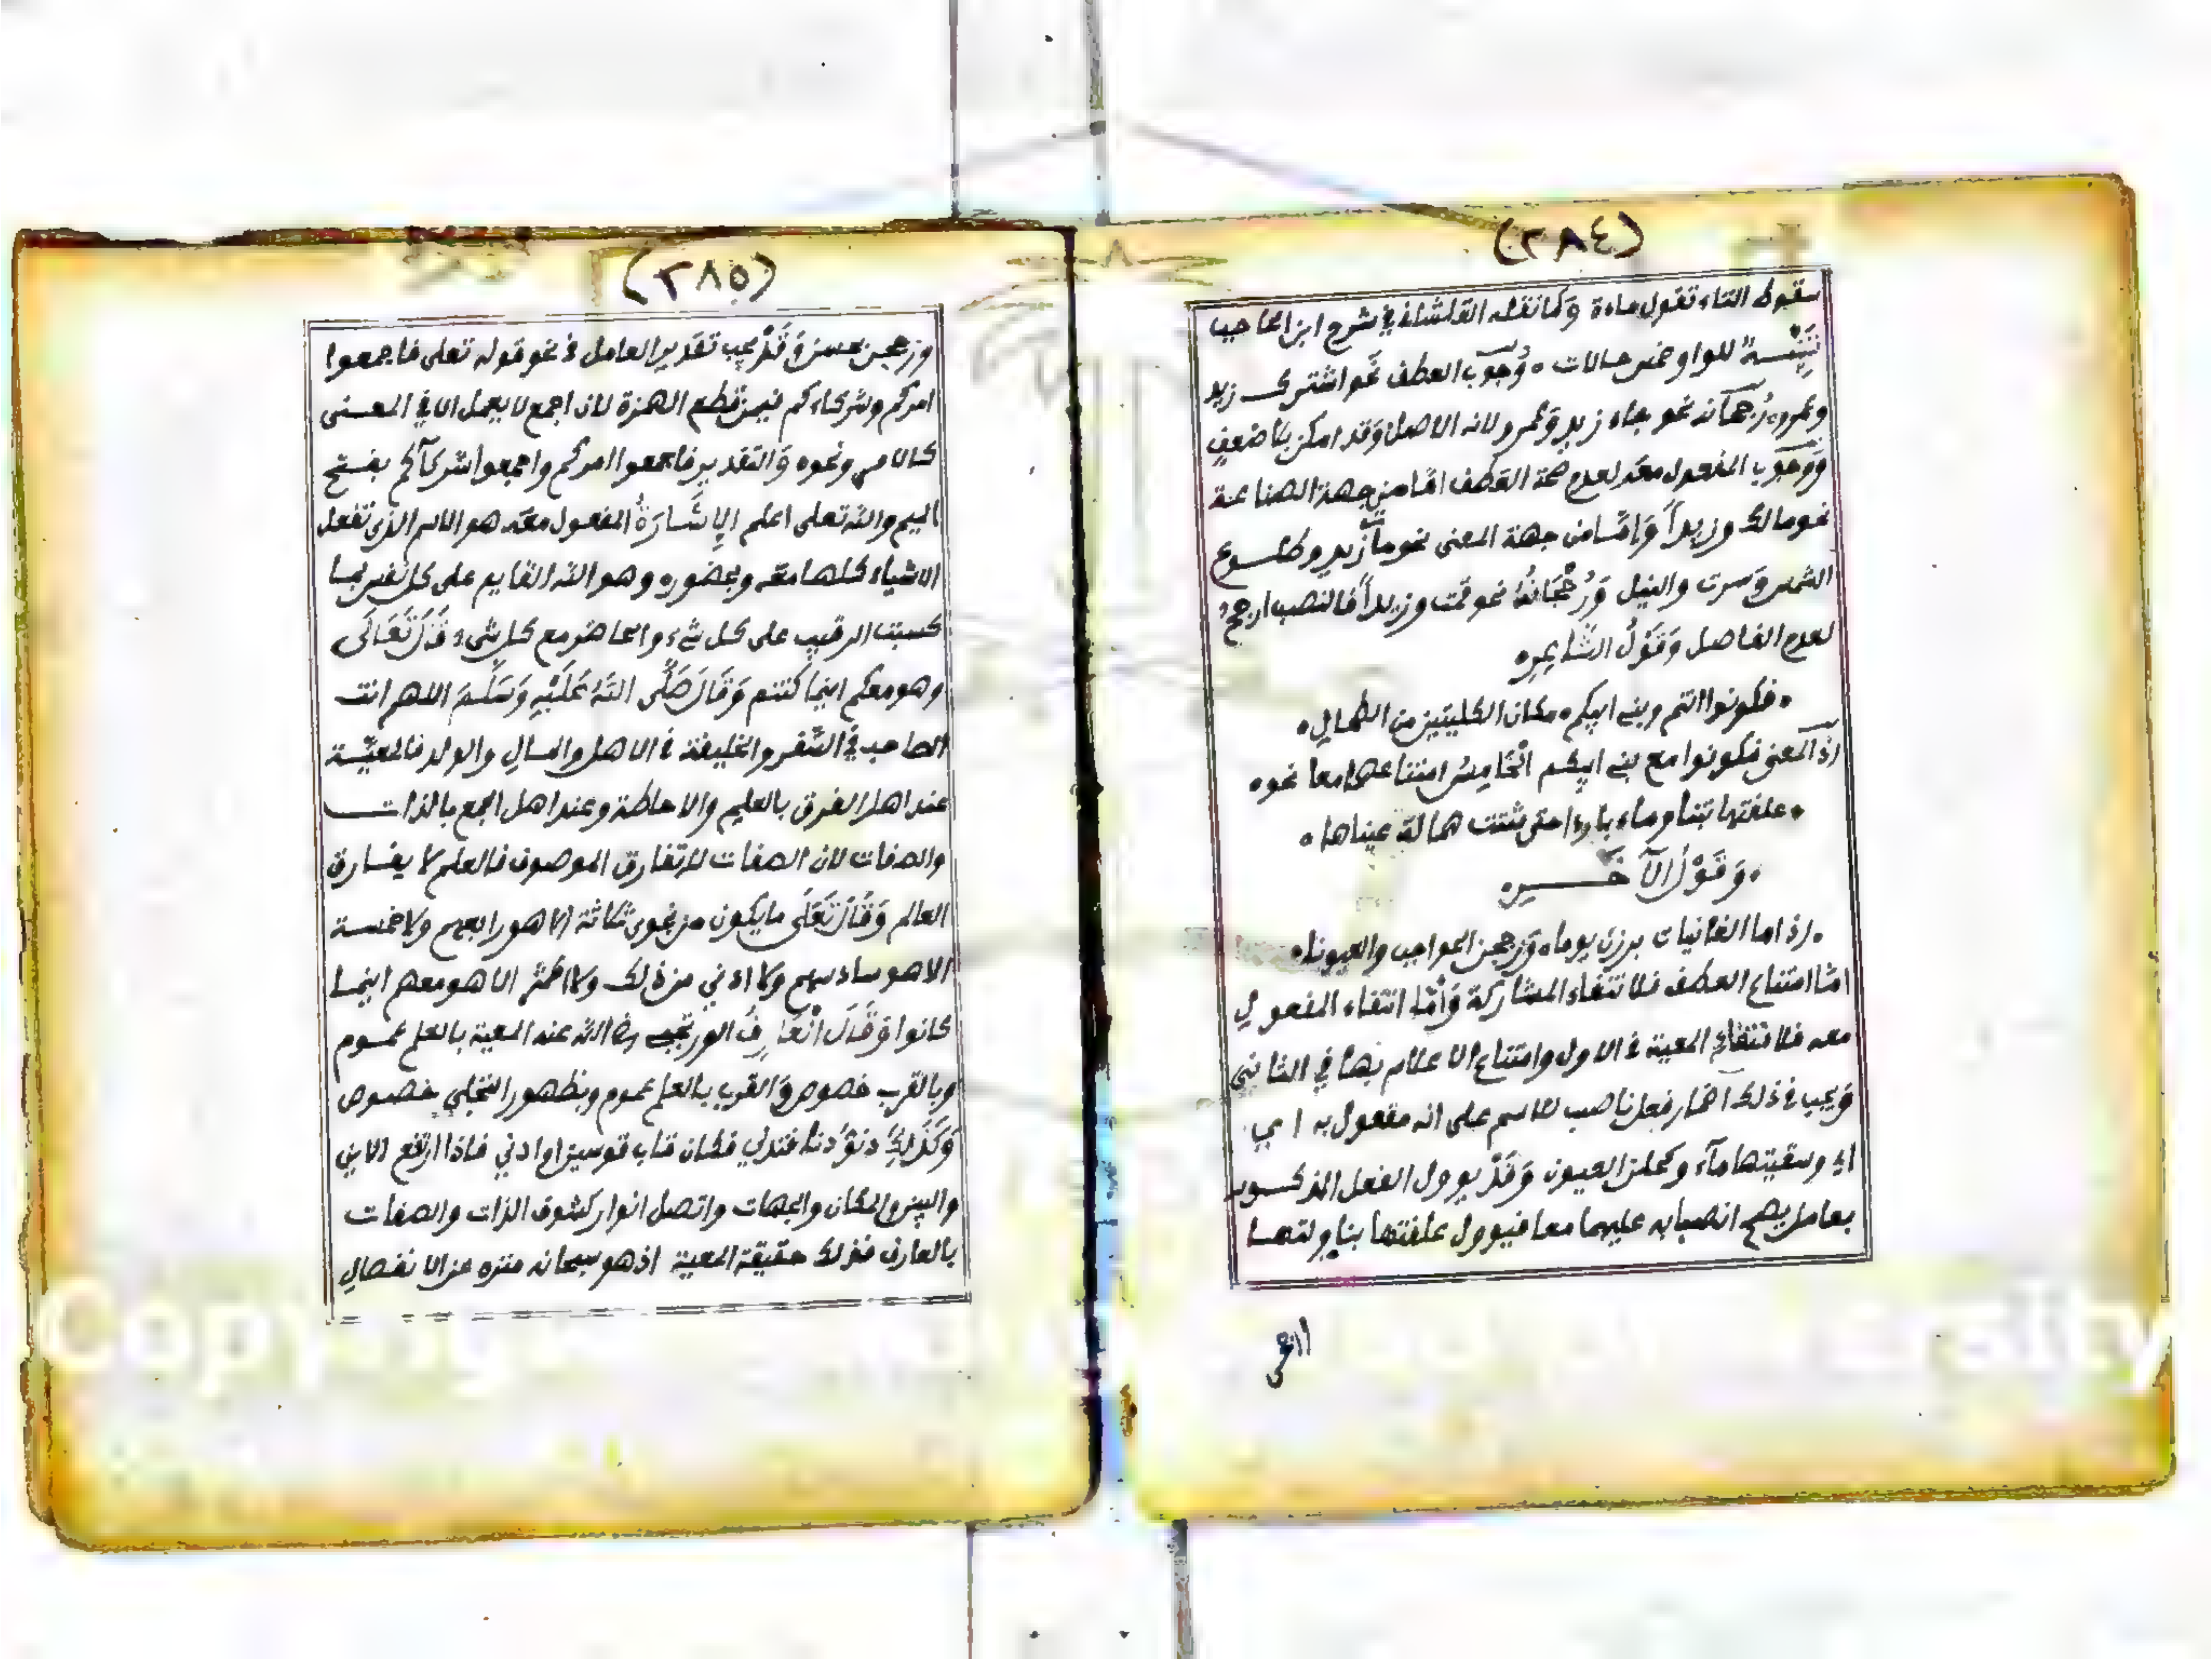 (٢٨٤)
سقوط التاء تقول ماءة وكما نقله القلشاني في شرح ابن الحاجب
تَنْبِيْــهٌ للواو خمس حالات ٠ وُجُوب العطف نحو اشترك زيد
وعمرو ورُجحَانه نحو جاء زيد وعمرو لانه الاصل وقد امكن بلا ضعفٍ
وَوجُوب المفعول معه لعدم صحة العطف امّا من جهة الصناعة
نحو مالك وزيداً وَامّا من جهة المعنى نحو مات زيد وطلــوع
الشمس وسرت والنيل وَرُجْحَانهُ نحو قمت وزيداً فالنصب ارجح
لعدم الفاصل وَقَوْلُ الشَّاعِرِ
٠ فكونوا انتم وبني ابيكم ٠ مكان الكليتين من الطحالِ ٠
اذ المعنى فكونوا مع بني ابيكم الْخَامِسُ امتناعهما معا نحو
٠ علفتها تبنا وماء باردا حتى شتت همالة عيناها ٠
٠ وَقَوْلُ الآخَـــــرِ
٠ اذ اما الغانيات برزن يوما ٠ وزججن الحواجب والعيونا ٠
امّا امتناع العطف فلانتفاء المشاركة وَأمّا انتفاء المفعول
معه فلانتفاء المعية في الاول وامتناع الاعلام بها في الثاني
وَيجب في ذلك اضمار فعل ناصب للاسم على انه مفعول به اي
اي وسقيتها مآء وكحلن العيون وَقَدْ يوول الفعل المذكــور
بعامل يصح انصبابه عليهما معا فيوول علفتها بناولتهــا
(٢٨٥)
وزججن بحسن وَقَدْ يجب تقدير العامل في نحو قوله تعلى فاجمعوا
امركم وشركاءكم فيمن قطع الهمزة لان اجمع لا يعمل الا في المعــنى
كالامر ونحوه وَالتقدير فاجمعوا امركم واجمعوا شركآكم بفتح
الميم والله تعلى اعلم الإِشَــارَةُ المفعول معَه هو الاسم الذي تفعل
الاشياء كلها معه وبحضوره وهو الله القايم على كل نفس بمــا
كسبت الرقيب على كل شيء والحاضر مع كل شيء قَالَ تَعَالَى
وهو معكم اينما كنتم وَقَالَ صَلَّى اللهُ عَلَيْهِ وَسَلَّمَ اللهم انت
الصاحب في السّفر والخليفة في الاهل والمــال والولد فالمعيّــة
عند اهل الفرق بالعلم والاحاطة وعند اهل الجمع بالذات
والصفات لان الصفات لا تفارق الموصوف فالعلم لا يفــارق
العالم وَقَالَ تَعَلَى ما يكون من نجوى ثلاثة الا هو رابعهم ولا خمسة
الا هو سادسهم ولا ادني من ذلك ولا اكثر الا هو معهم اينمــا
كانوا وَقَالَ الْعَارِفُ الورتجبي رضي الله عنه المعية بالعلم عمــوم
وبالقرب خصوص وَالقرب بالعلم عموم وبظهور التجلي خصوص
وَكَذَلِكَ دنوّ دنا فتدلي فكان قاب قوسين او ادني فاذا ارتفع الاين
والبين والمكان والجهات واتصل انوار كشوف الذات والصفات
بالعارف فذلك حقيقة المعية اذ هو سبحانه منزه عن الانفصال